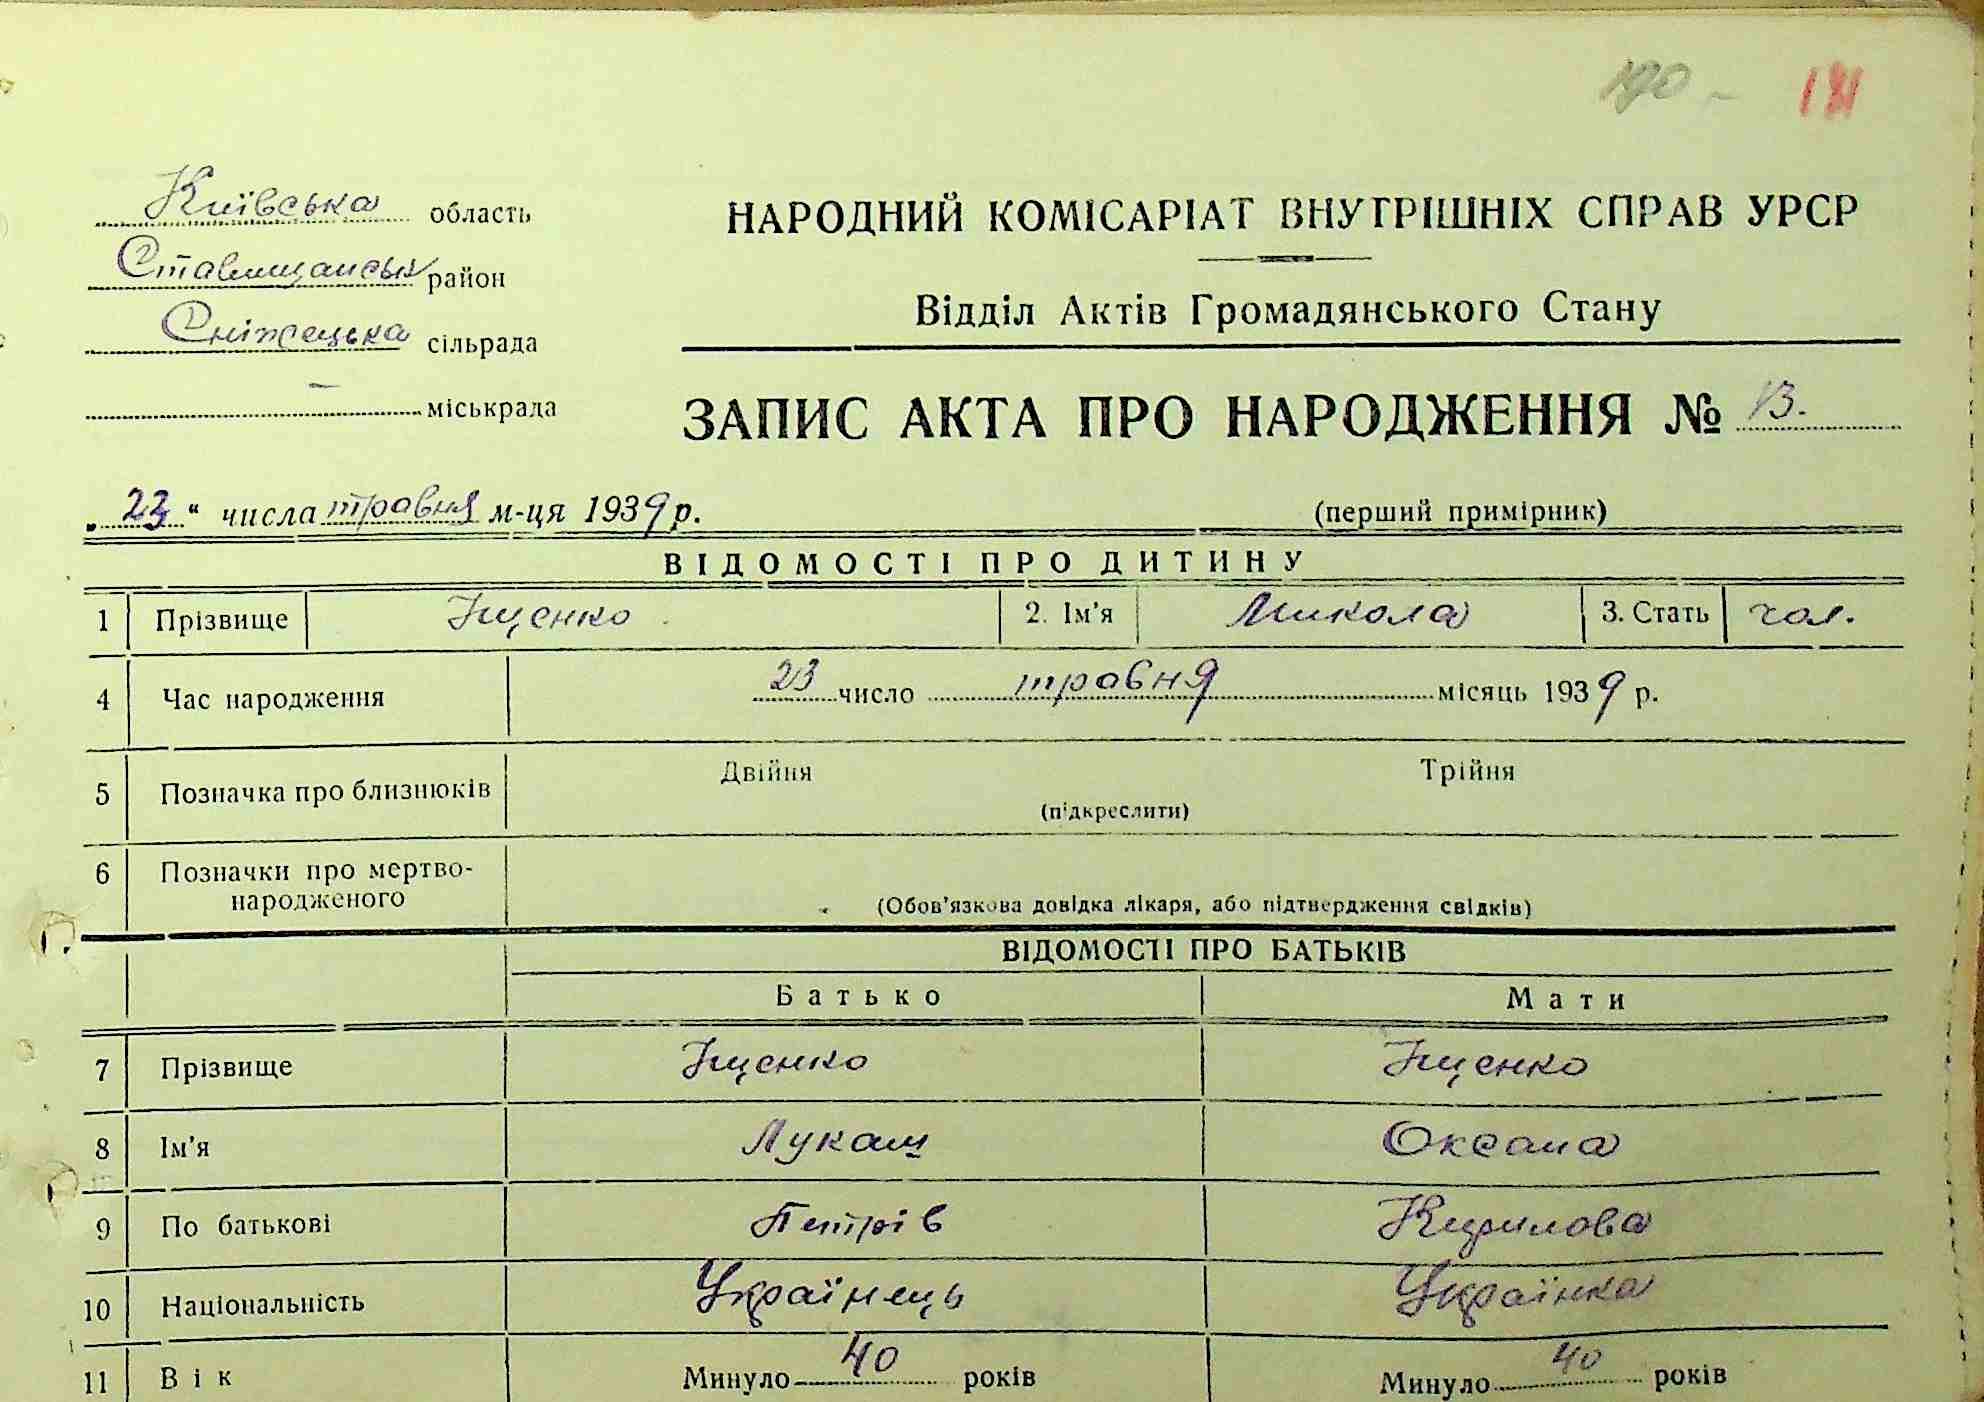 190 - 181
Київська область
Ставищанськ район
Сніжецька сільрада
– міськрада
НАРОДНИЙ КОМІСАРІАТ ВНУТРІШНІХ СПРАВ УРСР
Відділ Актів Громадянського Стану
ЗАПИС АКТА ПРО НАРОДЖЕННЯ № 13.
„23“ числа травня м-ця 1939 р.
(перший примірник)
ВІДОМОСТІ ПРО ДИТИНУ
1 Прізвище Іщенко 2. Ім'я Микола 3. Стать чол.
4 Час народження 23 число травня місяць 1939 р.
5 Позначка про близнюків Двійня Трійня
(підкреслити)
6 Позначки про мертво-
народженого
(Обов'язкова довідка лікаря, або підтвердження свідків)
ВІДОМОСТІ ПРО БАТЬКІВ
Батько Мати
7 Прізвище Іщенко Іщенко
8 Ім'я Лукаш Оксана
9 По батькові Петрів Кирилова
10 Національність Українець Українка
11 Вік Минуло 40 років Минуло 40 років